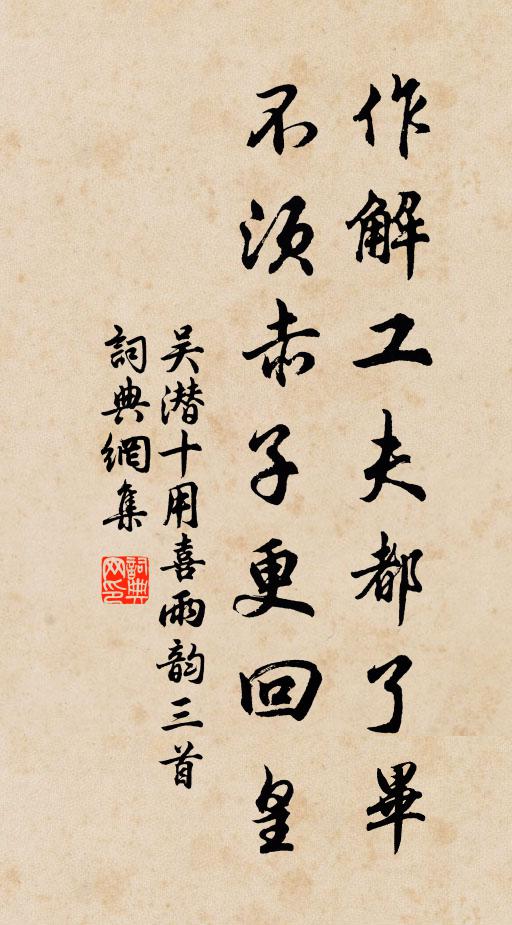 作解工夫都了畢
不須赤子更回皇
吴潜十用喜雨韵三首
詞典網集
詞典网印